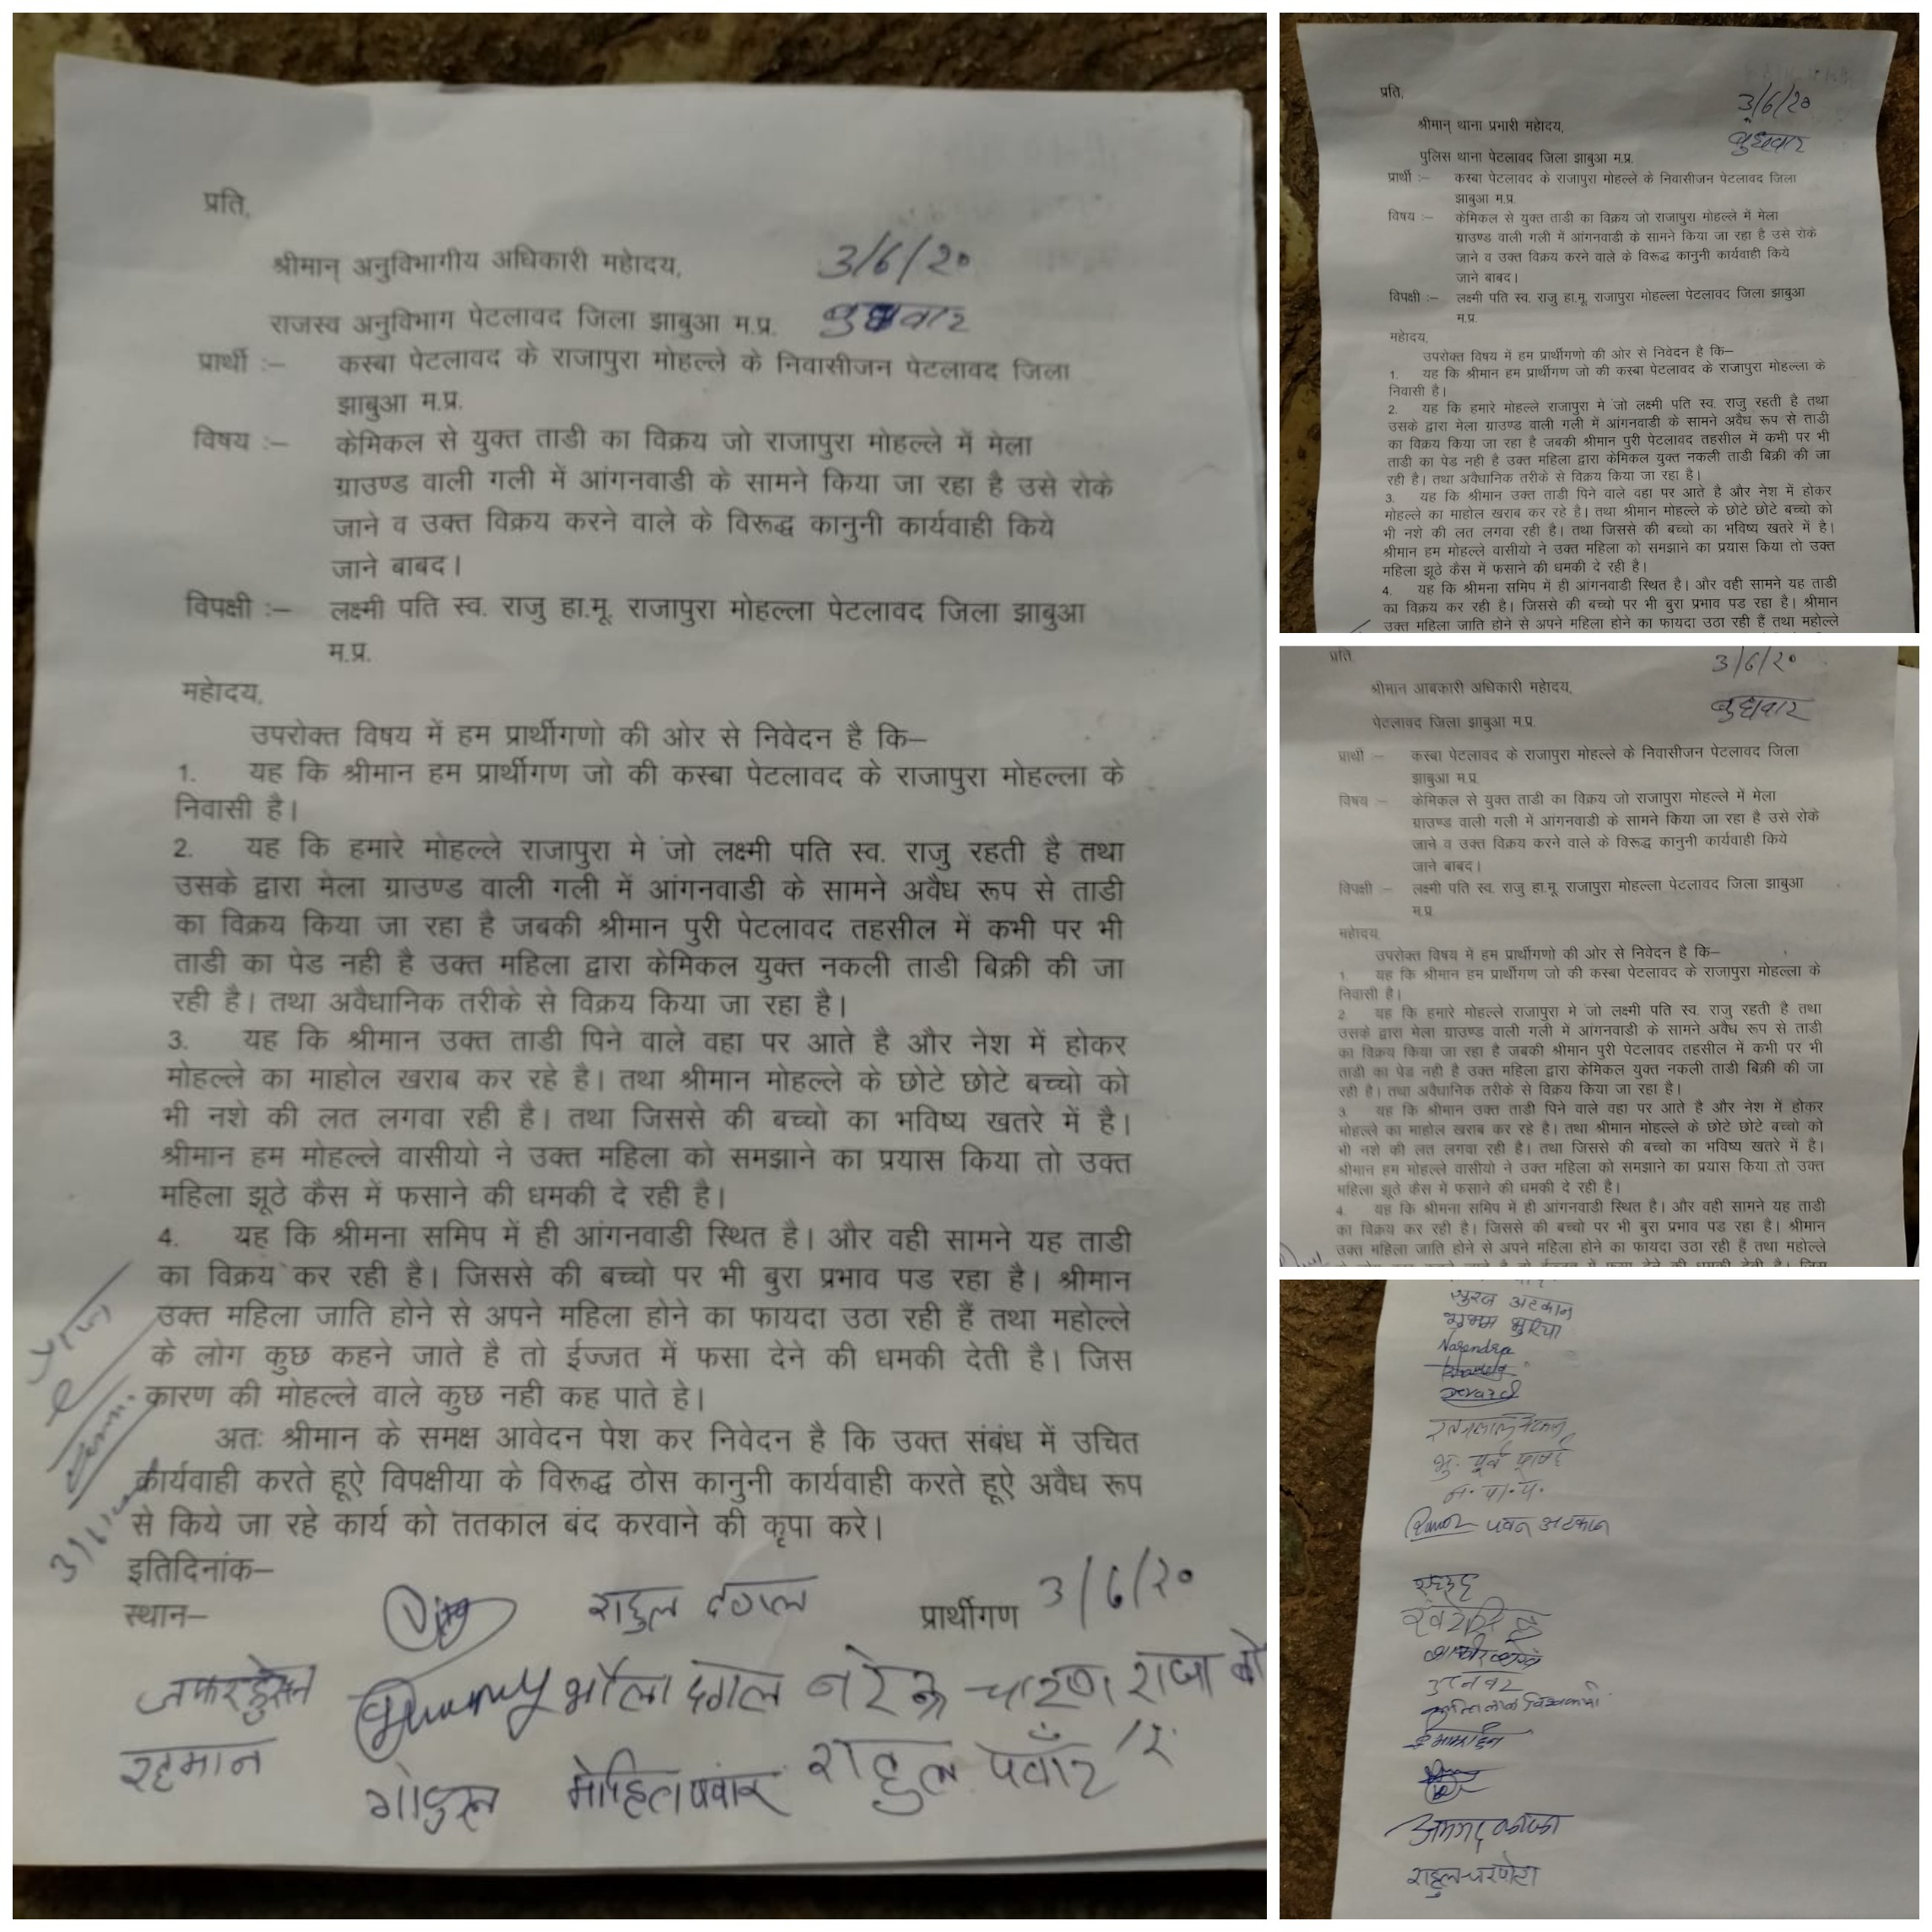 प्रति,
श्रीमान् अनुविभागीय अधिकारी महोदय,
3/6/20
राजस्व अनुविभाग पेटलावद जिला झाबुआ म.प्र.
बुधवार
प्रार्थी :– कस्बा पेटलावद के राजापुरा मोहल्ले के निवासीजन पेटलावद जिला
झाबुआ म.प्र.
विषय :– केमिकल से युक्त ताडी का विक्रय जो राजापुरा मोहल्ले में मेला
ग्राउण्ड वाली गली में आंगनवाडी के सामने किया जा रहा है उसे रोके
जाने व उक्त विक्रय करने वाले के विरूद्ध कानुनी कार्यवाही किये
जाने बाबद।
विपक्षी :– लक्ष्मी पति स्व. राजु हा.मू. राजापुरा मोहल्ला पेटलावद जिला झाबुआ
म.प्र.
महोदय,
उपरोक्त विषय में हम प्रार्थीगणो की ओर से निवेदन है कि–
1. यह कि श्रीमान हम प्रार्थीगण जो की कस्बा पेटलावद के राजापुरा मोहल्ला के
निवासी है।
2. यह कि हमारे मोहल्ले राजापुरा मे जो लक्ष्मी पति स्व. राजु रहती है तथा
उसके द्वारा मेला ग्राउण्ड वाली गली में आंगनवाडी के सामने अवैध रूप से ताडी
का विक्रय किया जा रहा है जबकी श्रीमान पुरी पेटलावद तहसील में कभी पर भी
ताडी का पेड नही है उक्त महिला द्वारा केमिकल युक्त नकली ताडी बिक्री की जा
रही है। तथा अवैधानिक तरीके से विक्रय किया जा रहा है।
3. यह कि श्रीमान उक्त ताडी पिने वाले वहा पर आते है और नेश में होकर
मोहल्ले का माहोल खराब कर रहे है। तथा श्रीमान मोहल्ले के छोटे छोटे बच्चो को
भी नशे की लत लगवा रही है। तथा जिससे की बच्चो का भविष्य खतरे में है।
श्रीमान हम मोहल्ले वासीयो ने उक्त महिला को समझाने का प्रयास किया तो उक्त
महिला झूठे कैस में फसाने की धमकी दे रही है।
4. यह कि श्रीमना समिप में ही आंगनवाडी स्थित है। और वही सामने यह ताडी
का विक्रय कर रही है। जिससे की बच्चो पर भी बुरा प्रभाव पड रहा है। श्रीमान
उक्त महिला जाति होने से अपने महिला होने का फायदा उठा रही हैं तथा महोल्ले
के लोग कुछ कहने जाते है तो ईज्जत में फसा देने की धमकी देती है। जिस
कारण की मोहल्ले वाले कुछ नही कह पाते हे।
अतः श्रीमान के समक्ष आवेदन पेश कर निवेदन है कि उक्त संबंध में उचित
कार्यवाही करते हूऐ विपक्षीया के विरूद्ध ठोस कानुनी कार्यवाही करते हूऐ अवैध रूप
से किये जा रहे कार्य को ततकाल बंद करवाने की कृपा करे।
इतिदिनांक–
स्थान–
राहुल दगल
प्रार्थीगण 3/6/20
भोला दगल नरेन्द्र चारण राजा
रहमान
मोहित पवार राहुल पवाँर
प्रति,
3/6/20
श्रीमान् थाना प्रभारी महोदय,
बुधवार
पुलिस थाना पेटलावद जिला झाबुआ म.प्र.
प्रार्थी :– कस्बा पेटलावद के राजापुरा मोहल्ले के निवासीजन पेटलावद जिला
झाबुआ म.प्र.
विषय :– केमिकल से युक्त ताडी का विक्रय जो राजापुरा मोहल्ले में मेला
ग्राउण्ड वाली गली में आंगनवाडी के सामने किया जा रहा है उसे रोके
जाने व उक्त विक्रय करने वाले के विरूद्ध कानुनी कार्यवाही किये
जाने बाबद।
विपक्षी :– लक्ष्मी पति स्व. राजु हा.मू. राजापुरा मोहल्ला पेटलावद जिला झाबुआ
म.प्र.
महोदय,
उपरोक्त विषय में हम प्रार्थीगणो की ओर से निवेदन है कि–
1. यह कि श्रीमान हम प्रार्थीगण जो की कस्बा पेटलावद के राजापुरा मोहल्ला के
निवासी है।
2. यह कि हमारे मोहल्ले राजापुरा मे जो लक्ष्मी पति स्व. राजु रहती है तथा
उसके द्वारा मेला ग्राउण्ड वाली गली में आंगनवाडी के सामने अवैध रूप से ताडी
का विक्रय किया जा रहा है जबकी श्रीमान पुरी पेटलावद तहसील में कभी पर भी
ताडी का पेड नही है उक्त महिला द्वारा केमिकल युक्त नकली ताडी बिक्री की जा
रही है। तथा अवैधानिक तरीके से विक्रय किया जा रहा है।
3. यह कि श्रीमान उक्त ताडी पिने वाले वहा पर आते है और नेश में होकर
मोहल्ले का माहोल खराब कर रहे है। तथा श्रीमान मोहल्ले के छोटे छोटे बच्चो को
भी नशे की लत लगवा रही है। तथा जिससे की बच्चो का भविष्य खतरे में है।
श्रीमान हम मोहल्ले वासीयो ने उक्त महिला को समझाने का प्रयास किया तो उक्त
महिला झूठे कैस में फसाने की धमकी दे रही है।
4. यह कि श्रीमना समिप में ही आंगनवाडी स्थित है। और वही सामने यह ताडी
का विक्रय कर रही है। जिससे की बच्चो पर भी बुरा प्रभाव पड रहा है। श्रीमान
उक्त महिला जाति होने से अपने महिला होने का फायदा उठा रही हैं तथा महोल्ले
प्रति
3/6/20
श्रीमान आबकारी अधिकारी महोदय,
बुधवार
पेटलावद जिला झाबुआ म.प्र.
प्रार्थी :– कस्बा पेटलावद के राजापुरा मोहल्ले के निवासीजन पेटलावद जिला
झाबुआ म.प्र.
विषय :– केमिकल से युक्त ताडी का विक्रय जो राजापुरा मोहल्ले में मेला
ग्राउण्ड वाली गली में आंगनवाडी के सामने किया जा रहा है उसे रोके
जाने व उक्त विक्रय करने वाले के विरूद्ध कानुनी कार्यवाही किये
जाने बाबद।
विपक्षी :– लक्ष्मी पति स्व. राजु हा.मू. राजापुरा मोहल्ला पेटलावद जिला झाबुआ
म.प्र.
महोदय,
उपरोक्त विषय में हम प्रार्थीगणो की ओर से निवेदन है कि–
1. यह कि श्रीमान हम प्रार्थीगण जो की कस्बा पेटलावद के राजापुरा मोहल्ला के
निवासी है।
2 यह कि हमारे मोहल्ले राजापुरा मे जो लक्ष्मी पति स्व. राजु रहती है तथा
उसके द्वारा मेला ग्राउण्ड वाली गली में आंगनवाडी के सामने अवैध रूप से ताडी
का विक्रय किया जा रहा है जबकी श्रीमान पुरी पेटलावद तहसील में कभी पर भी
ताडी का पेड नही है उक्त महिला द्वारा केमिकल युक्त नकली ताडी बिक्री की जा
रही है। तथा अवैधानिक तरीके से विक्रय किया जा रहा है।
3. यह कि श्रीमान उक्त ताडी पिने वाले वहा पर आते है और नेश में होकर
मोहल्ले का माहोल खराब कर रहे है। तथा श्रीमान मोहल्ले के छोटे छोटे बच्चो को
भी नशे की लत लगवा रही है। तथा जिससे की बच्चो का भविष्य खतरे में है।
श्रीमान हम मोहल्ले वासीयो ने उक्त महिला को समझाने का प्रयास किया तो उक्त
महिला झूठे कैस में फसाने की धमकी दे रही है।
4. यह कि श्रीमना समिप में ही आंगनवाडी स्थित है। और वही सामने यह ताडी
का विक्रय कर रही है। जिससे की बच्चो पर भी बुरा प्रभाव पड रहा है। श्रीमान
उक्त महिला जाति होने से अपने महिला होने का फायदा उठा रही हैं तथा महोल्ले
सुरज अटकान
शुभम भुरिया
Narendra
न. पा. प.
पवन अटकान